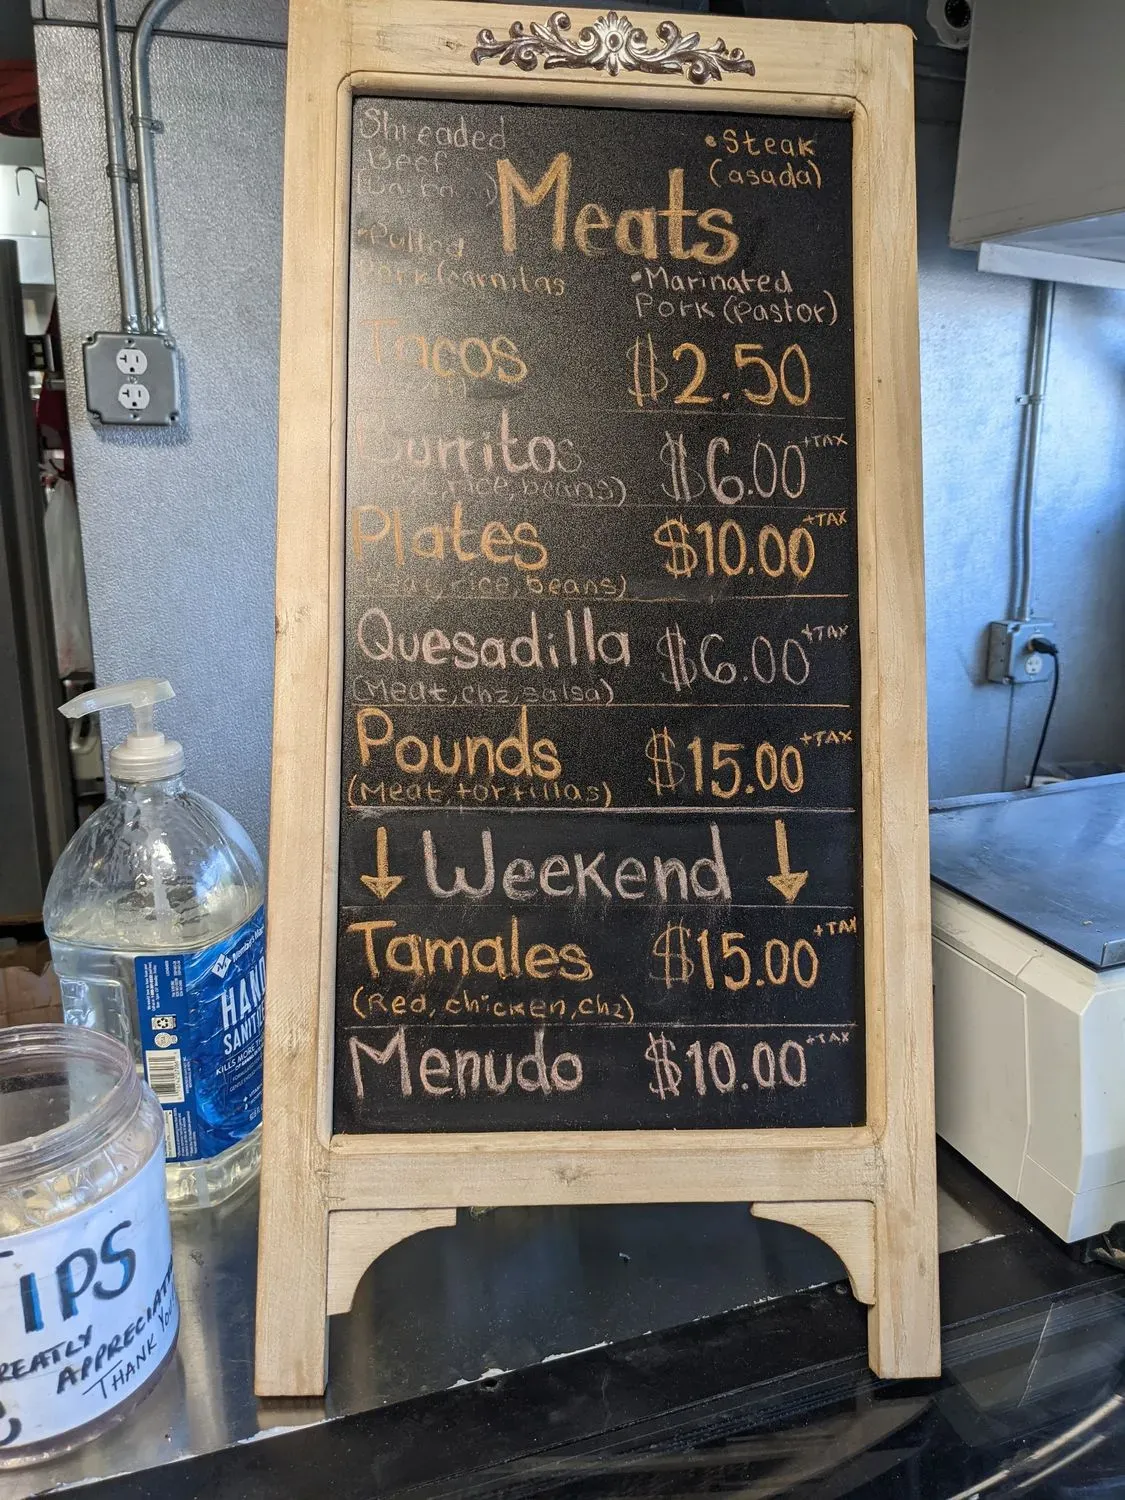 Shreaded
Beef
• Steak
(asada)
Meats
• Pulled
Pork (carnitas
• Marinated
Pork (Pastor)
Tacos $2.50
Burritos $6.00 +TAX
rice, beans)
Plates $10.00 +TAX
(Meat, rice, beans)
Quesadilla $6.00 +TAX
(Meat, chz, salsa)
Pounds $15.00 +TAX
(Meat, tortillas)
↓ Weekend ↓
Tamales $15.00 +TAX
(Red, chicken, chz)
Menudo $10.00 +TAX
Member's Mark
HAND
SANITIZ
KILLS MORE
TIPS
REATLY
APPRECIAT
THANK YOU